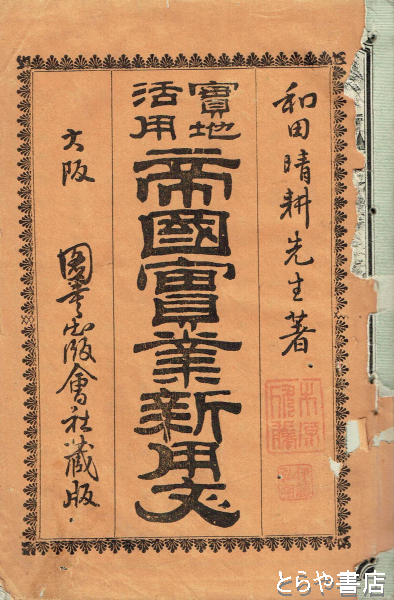 和田晴耕先生著
實地
活用
帝國實業新用文
大阪 圖書出版會社蔵版
とらや書店